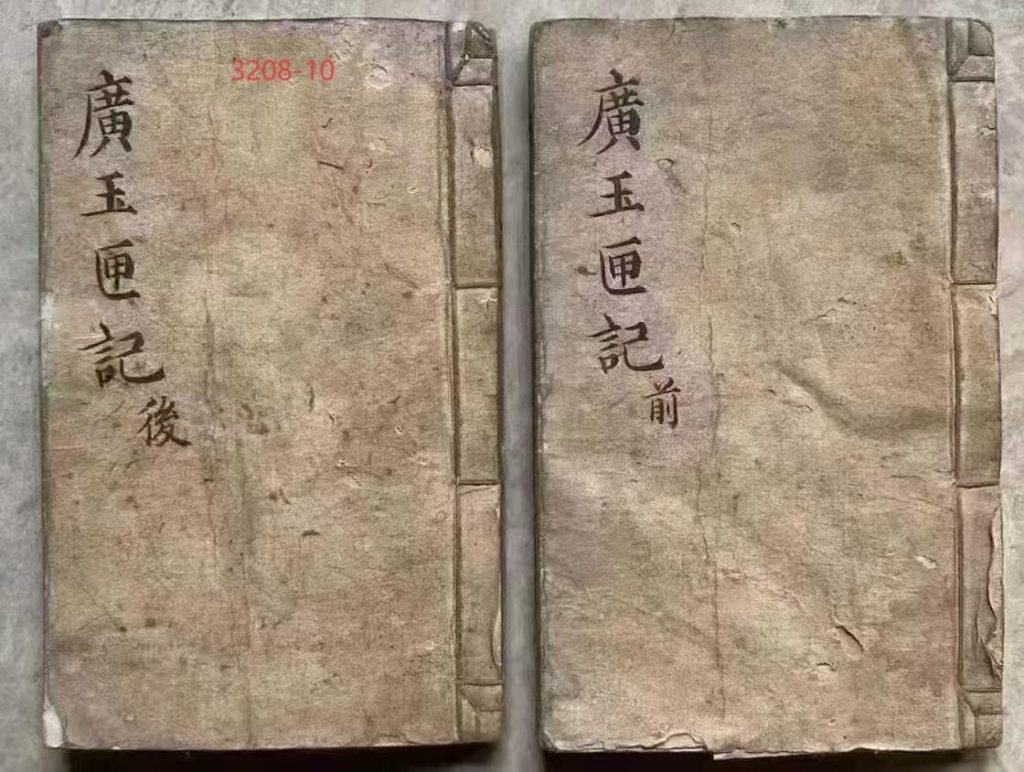 3208-10
廣玉匣記
後
廣玉匣記
前